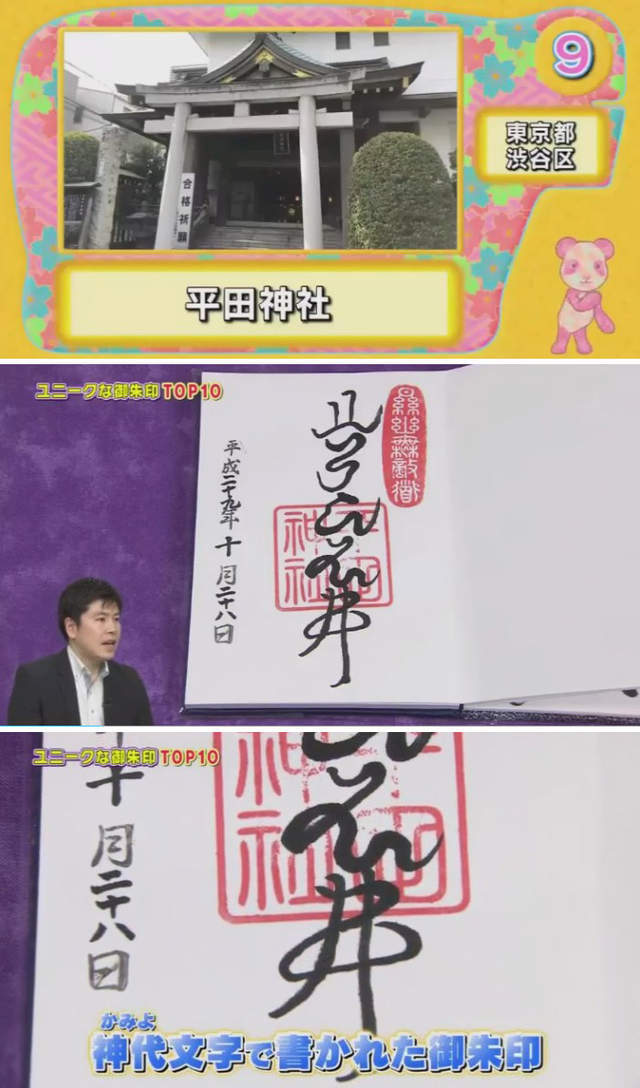 9
東京都
渋谷区
合格祈願
平田神社
ユニークな御朱印TOP10
平成二十九年十月二十八日
ユニークな御朱印TOP10
十月二十八日
かみよ
神代文字で書かれた御朱印